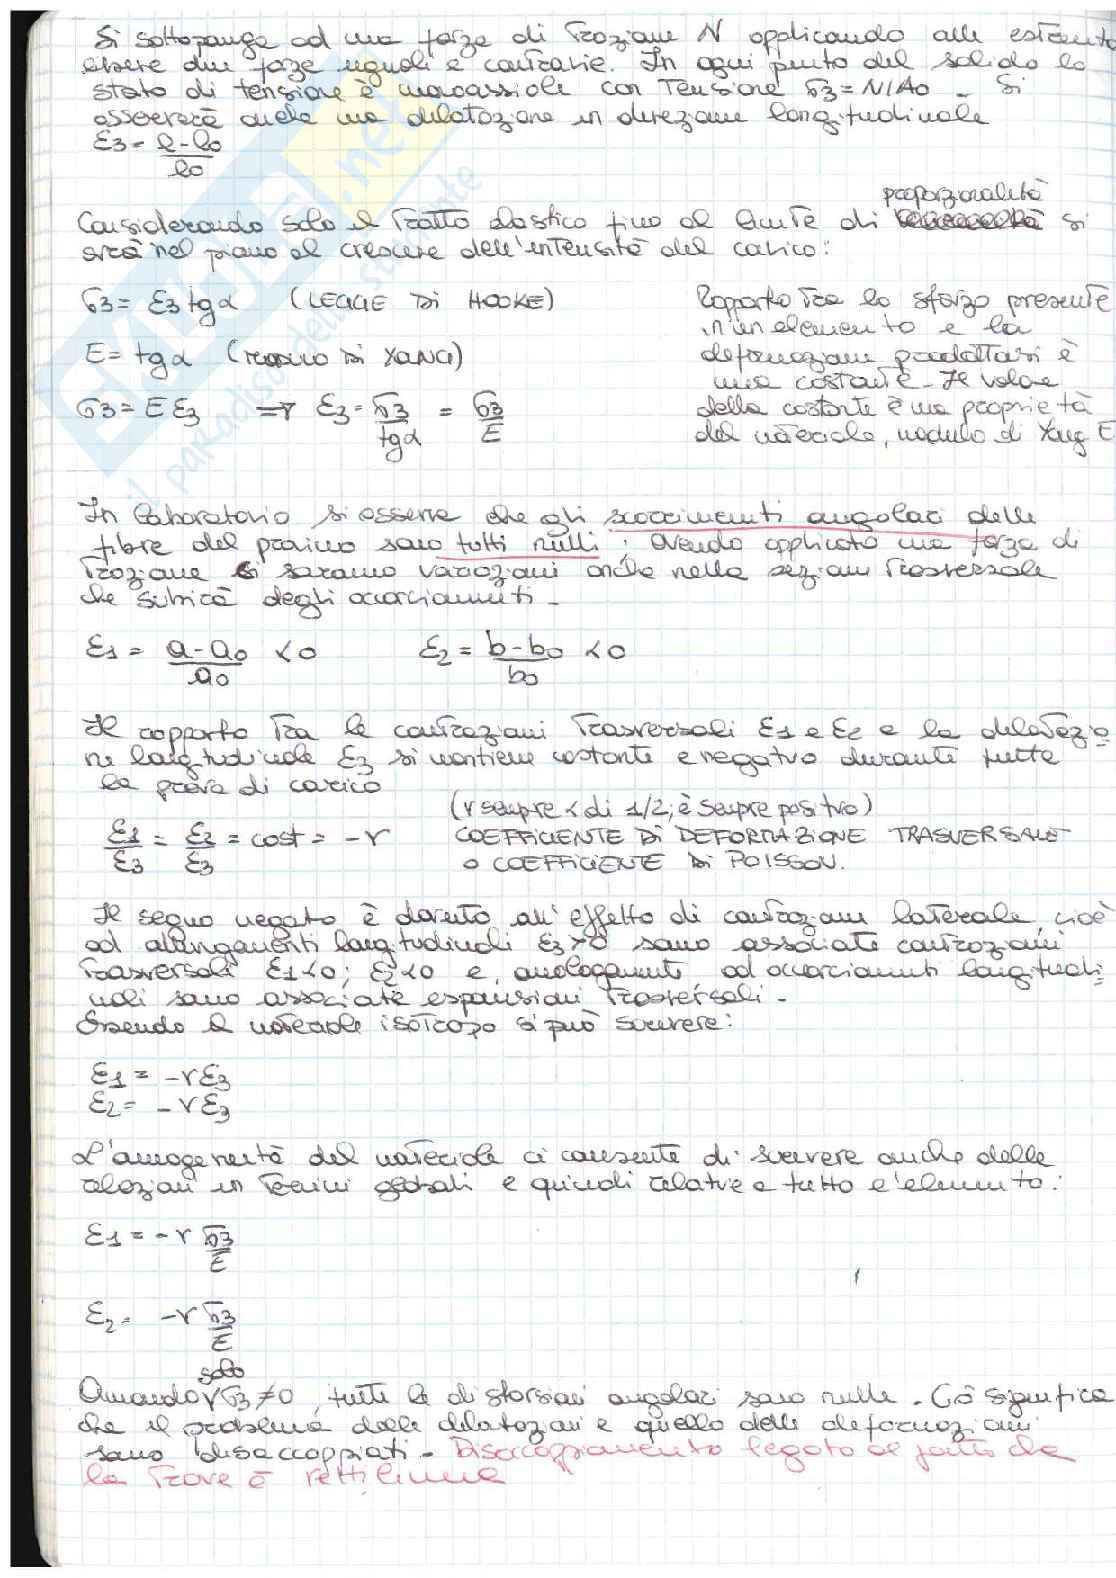 Si sottoponga ad una forza di trazione N applicando alle estremità
libere due forze uguali e contrarie. In ogni punto del solido lo
stato di tensione è monoassiale con tensione σ3 = N/A0 - Si
osserverà anche una dilatazione in direzione longitudinale
ε3 = l - l0 / l0
proporzionalità
Considerando solo il tratto elastico fino al limite di si
avrà nel piano al crescere dell'intensità del carico:
σ3 = ε3 tgα (LEGGE DI HOOKE)
E = tgα (MODULO DI YANG)
σ3 = E ε3 => ε3 = σ3/tgα = σ3/E
Rapporto tra lo sforzo presente
in un elemento e la
deformazione prodottasi è
una costante - Il valore
della costante è una proprietà
del materiale, modulo di Yang E
In laboratorio si osserva che gli scorrimenti angolari delle
fibre del provino sono tutti nulli; avendo applicato una forza di
trazione si saranno variazioni anche nella sezione trasversale
che subirà degli accorciamenti -
ε1 = a - a0 / a0 < 0 ε2 = b - b0 / b0 < 0
Il rapporto tra le contrazioni trasversali ε1 e ε2 e la dilatazio
ne longitudinale ε3 si mantiene costante e negativo durante tutta
la prova di carico
(ν sempre < di 1/2; è sempre positivo)
ε1/ε3 = ε2/ε3 = cost = -ν COEFFICIENTE DI DEFORMAZIONE TRASVERSALE
o COEFFICIENTE DI POISSON.
Il segno negato è dovuto all'effetto di contrazione laterale, cioè
ad allungamenti longitudinali ε3>0 sono associate contrazioni
trasversali ε1<0; ε2<0 e, analogamente, ad accorciamenti longitudi
nali sono associate espansioni trasversali -
Essendo il materiale isotropo si può scrivere:
ε1 = -νε3
ε2 = -νε3
L'omogeneità del materiale ci consente di scrivere anche delle
relazioni in termini globali e quindi relative a tutto l'elemento:
ε1 = -ν σ3/E
ε2 = -ν σ3/E
solo
Quando σ3 ≠ 0, tutte le distorsioni angolari sono nulle - Ciò significa
che il problema delle dilatazioni e quello delle deformazioni
sono disaccoppiati - Disaccoppiamento legato al fatto che
la trave è rettilinea